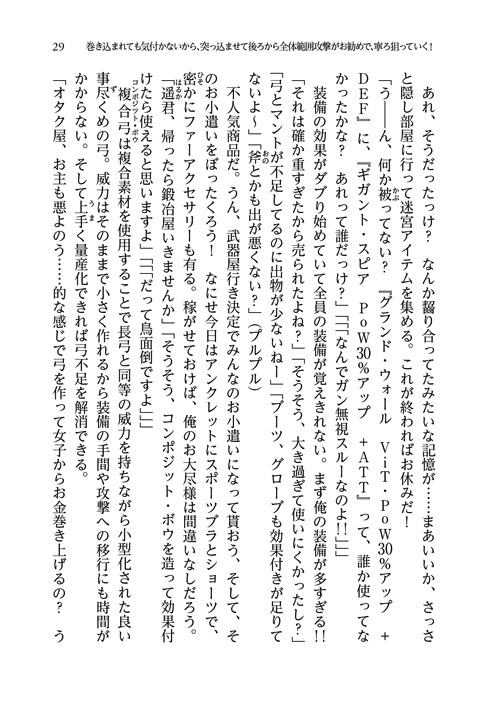 29　巻き込まれても気付かないから、突っ込ませて後ろから全体範囲攻撃がお勧めで、寧ろ狙っていく!
　あれ、そうだったっけ?　なんか齧り合ってたみたいな記憶が……まあいいか、さっさ
と隠し部屋に行って迷宮アイテムを集める。これが終わればお休みだ!
「う――ん、何か被ってない?　『グランド・ウォール　ViT・PoW30%アップ　+
DEF』に、『ギガント・スピア　PoW30%アップ　+ATT』って、誰か使ってな
かったかな?　あれって誰だっけ?」「「「なんでガン無視スルーなのよ!!」」」
　装備の効果がダブり始めていて全員の装備が覚えきれない。まず俺の装備が多すぎる!!
「それは確か重すぎたから売られたよね?」「そうそう、大き過ぎて使いにくかったし?」
「弓とマントが不足してるのに出物が少ないねー」「ブーツ、グローブも効果付きが足りて
ないよ～」「斧とかも出が悪くない?」(プルプル)
　不人気商品だ。うん、武器屋行き決定でみんなのお小遣いになって貰おう、そして、そ
のお小遣いをぼったくろう!　なにせ今日はアンクレットにスポーツブラとショーツで、
密かにファーアクセサリーも有る。稼がせておけば、俺のお大尽様は間違いなしだろう。
「遥君、帰ったら鍛冶屋いきませんか」「そうそう、コンポジット・ボウを造って効果付
けたら使えると思いますよ」「「「だって鳥面倒ですよ」」」
　複合弓は複合素材を使用することで長弓と同等の威力を持ちながら小型化された良い
事尽くめの弓。威力はそのままで小さく作れるから装備の手間や攻撃への移行にも時間が
かからない。そして上手く量産化できれば弓不足を解消できる。
「オタク屋、お主も悪よのう……的な感じで弓を作って女子からお金巻き上げるの?　う